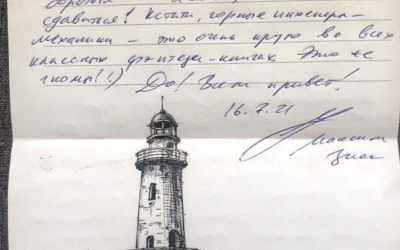 сдаваться! Кстати, горные инженера-
механики – это очень круто во всех
классных фэнтези-книгах. Это же
гномы(!) До! Всем привет!
16.7.21
Максим
Знак